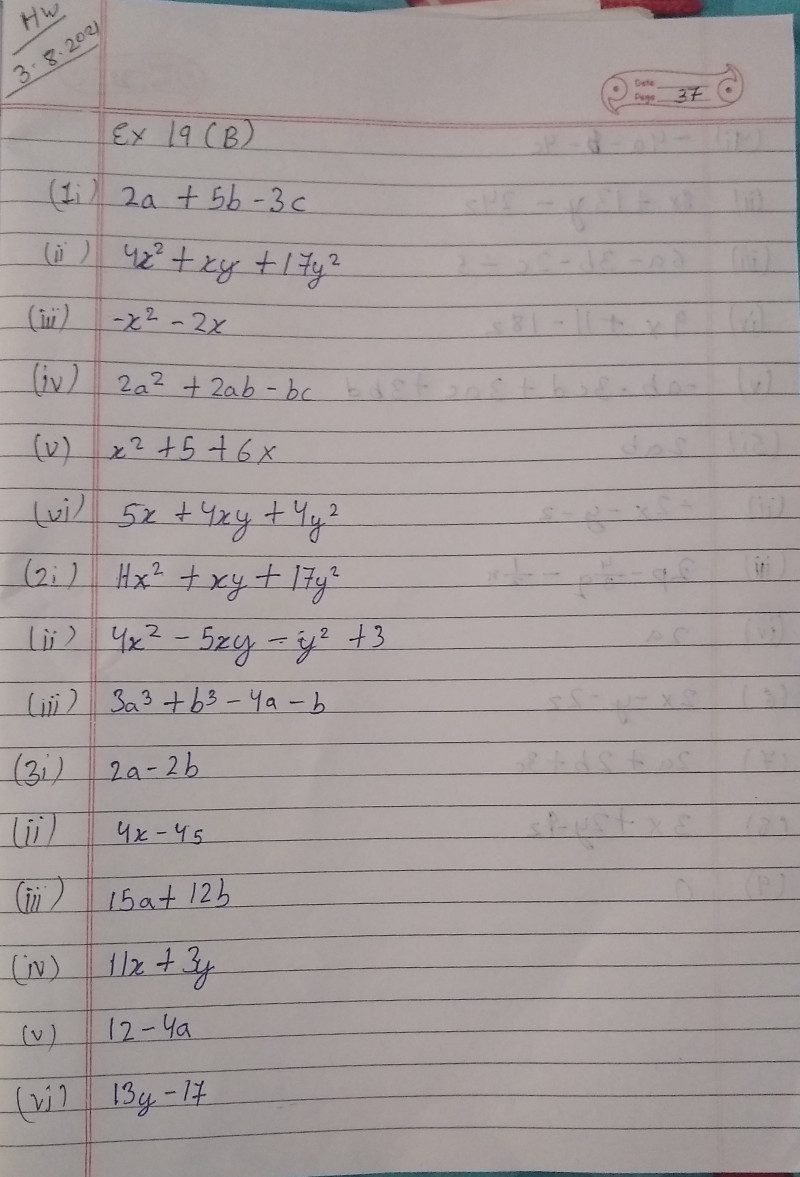 HW
3.8.2021
Date
Page 37
Ex 19 (B)
(1i) 2a + 5b - 3c
(ii) 4x² + xy + 17y²
(iii) -x² - 2x
(iv) 2a² + 2ab - bc
(v) x² + 5 + 6x
(vi) 5x + 4xy + 4y²
(2i) 11x² + xy + 17y²
(ii) 4x² - 5xy - y² + 3
(iii) 3a³ + b³ - 4a - b
(3i) 2a - 2b
(ii) 4x - 45
(iii) 15a + 12b
(iv) 11x + 3y
(v) 12 - 4a
(vi) 13y - 17